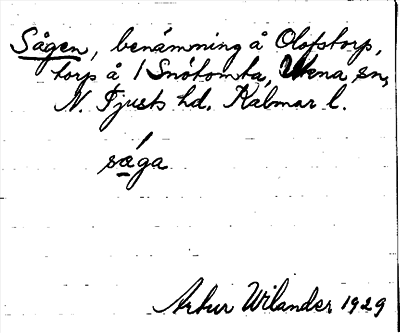 Sågen, benämning å Olofstorp,
torp å 1 Snötomta, Ukna sn,
N. Tjusts hd. Kalmar l.
sǽga
Artur Wilander 1929